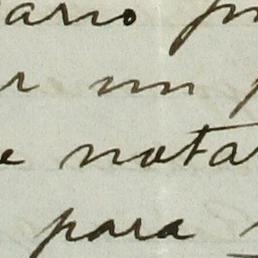 ario
r un
e nota
para